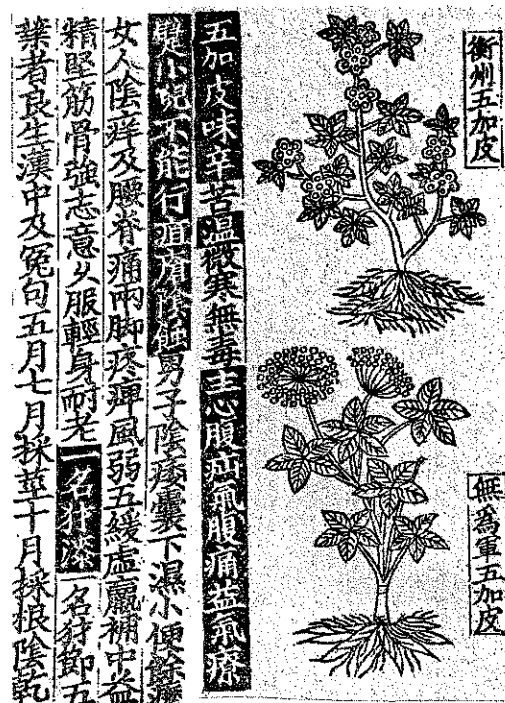 衡州五加皮
無為軍五加皮
五加皮味辛苦溫微寒無毒主心腹疝氣腹痛益氣療
躄小兒不能行疽瘡陰蝕男子陰痿囊下濕小便餘瀝
女人陰痒及腰脊痛兩脚疼痺風弱五緩虛羸補中益
精堅筋骨強志意久服輕身耐老一名犲漆一名犲節五
葉者良生漢中及冤句五月七月採莖十月採根陰乾